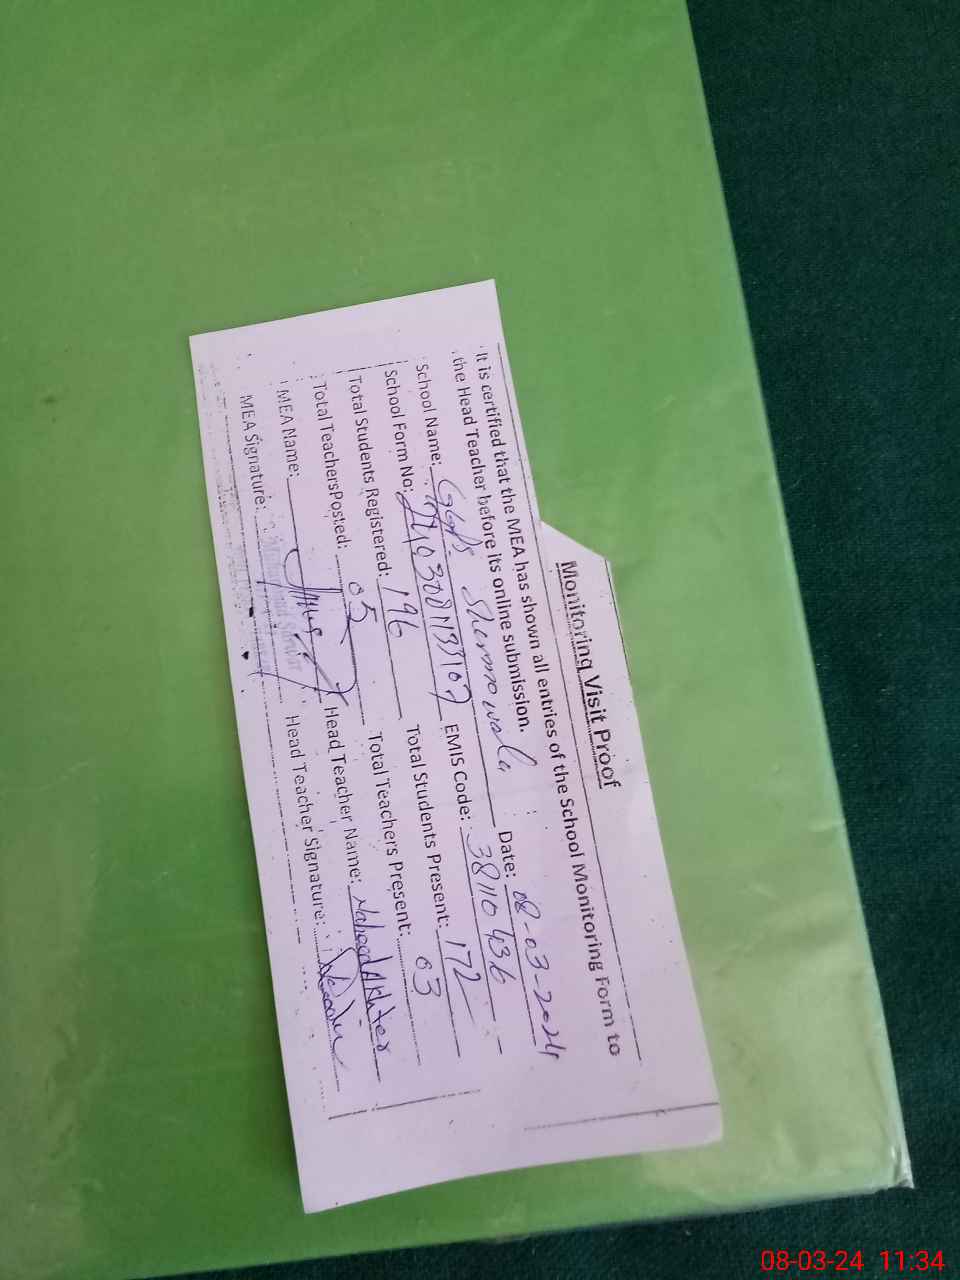 Monitoring Visit Proof
It is certified that the MEA has shown all entries of the School Monitoring Form to
the Head Teacher before its online submission.
School Name: GGPS Date: 08-03-2024
School Form No: EMIS Code: 38110436
Total Students Registered: 196 Total Students Present: 172
Total TeachersPosted: Total Teachers Present: 03
MEA Name: Head Teacher Name: Naheed Akhter
MEA Signature: Head Teacher Signature:
08-03-24 11:34